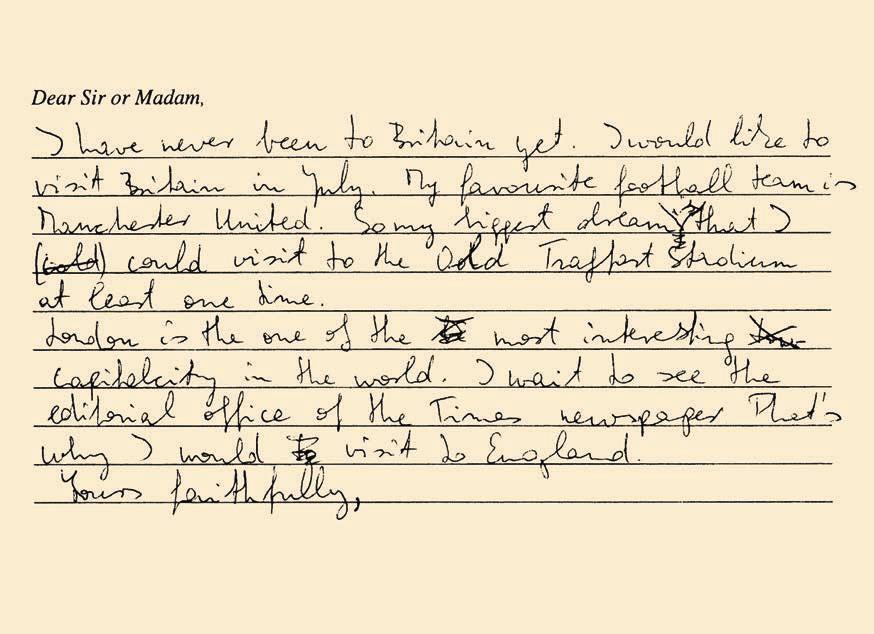 Dear Sir or Madam,
I have never been to Britain yet. I would like to
visit Britain in July. My favourite football team is
Manchester United. So my biggest dream is that I
(could) could visit to the Oold Traffort Stadium
at least one time.
London is the one of the most interesting
capitalcity in the world. I wait to see the
editorial office of the Times newspaper That's
why I would visit to England.
Yours faithfully,